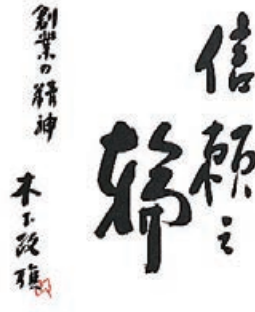 信頼之
輪
創業の精神
木下政雄